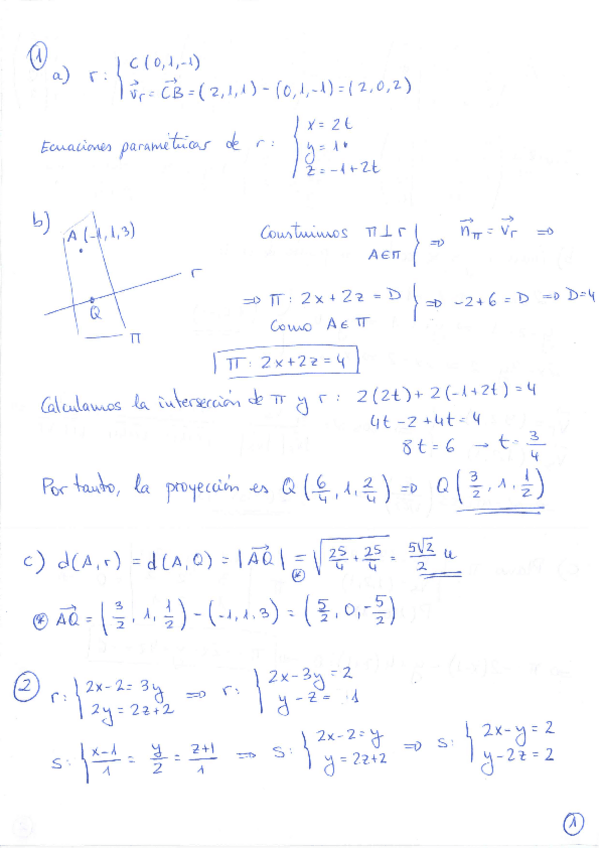 ①
a) r: { C(0,1,-1)
v⃗r = CB⃗ = (2,1,1) - (0,1,-1) = (2,0,2)
Ecuaciones paramétricas de r: { x = 2t
y = 1
z = -1+2t
b)
A(-1,1,3)
r
Q
π
Construimos π⊥r
A∈π } ⇒ n⃗π = v⃗r ⇒
⇒ π: 2x+2z = D
Como A∈π } ⇒ -2+6 = D ⇒ D=4
π: 2x+2z = 4
Calculamos la intersección de π y r: 2(2t)+2(-1+2t) = 4
4t-2+4t = 4
8t = 6 → t = 3/4
Por tanto, la proyección es Q(6/4, 1, 2/4) ⇒ Q(3/2, 1, 1/2)
c) d(A,r) = d(A,Q) = |AQ⃗| = √(25/4 + 25/4) = 5√2/2 u
⊛
⊛ AQ⃗ = (3/2, 1, 1/2) - (-1,1,3) = (5/2, 0, -5/2)
②
r: { 2x-2 = 3y
2y = 2z+2 ⇒ r: { 2x-3y = 2
y-z = 1
s: { x-1/1 = y/2 = z+1/1 ⇒ s: { 2x-2 = y
y = 2z+2 ⇒ s: { 2x-y = 2
y-2z = 2
①